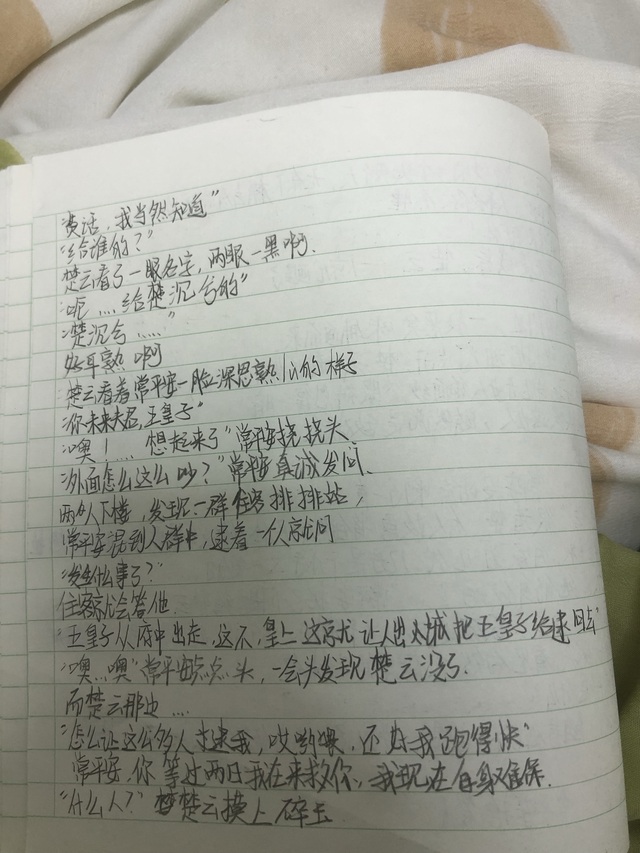 “废话，我当然知道”
“给谁的？”
楚云看了一眼名字，两眼一黑啊.
“呃....给楚沉兮的”
“楚沉兮.....”
好耳熟啊
楚云看着常平安一脸深思熟认的样子
“你未来夫君，五皇子”
“噢！....想起来了”常平安挠挠头.
“外面怎么这么吵？”常平安真诚发问.
两个人下楼，发现一群住客排排站，
常平安混到人群中，逮着一个人就问
“发生什么事了？”
住客就会答他.
“五皇子从府中出走，这不，皇上这就让人出城把五皇子给逮回去”
“噢..噢”常平安点点头，一会头发现楚云没了.
而楚云那边....
“怎么让这么多人才逮我，哎哟喂，还好我跑得快”
常平安，你等过两日我在来救你，我现在自身难保.
“什么人？”楚云摸上碎玉